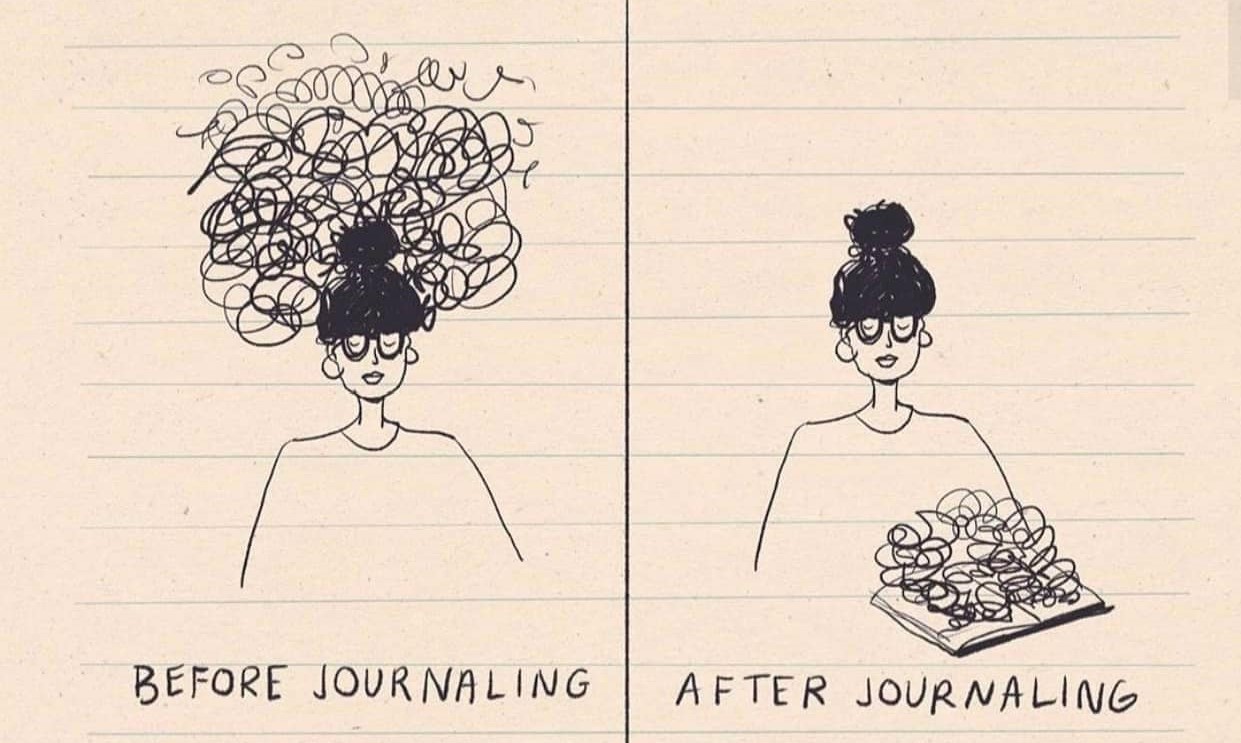 BEFORE JOURNALING
AFTER JOURNALING